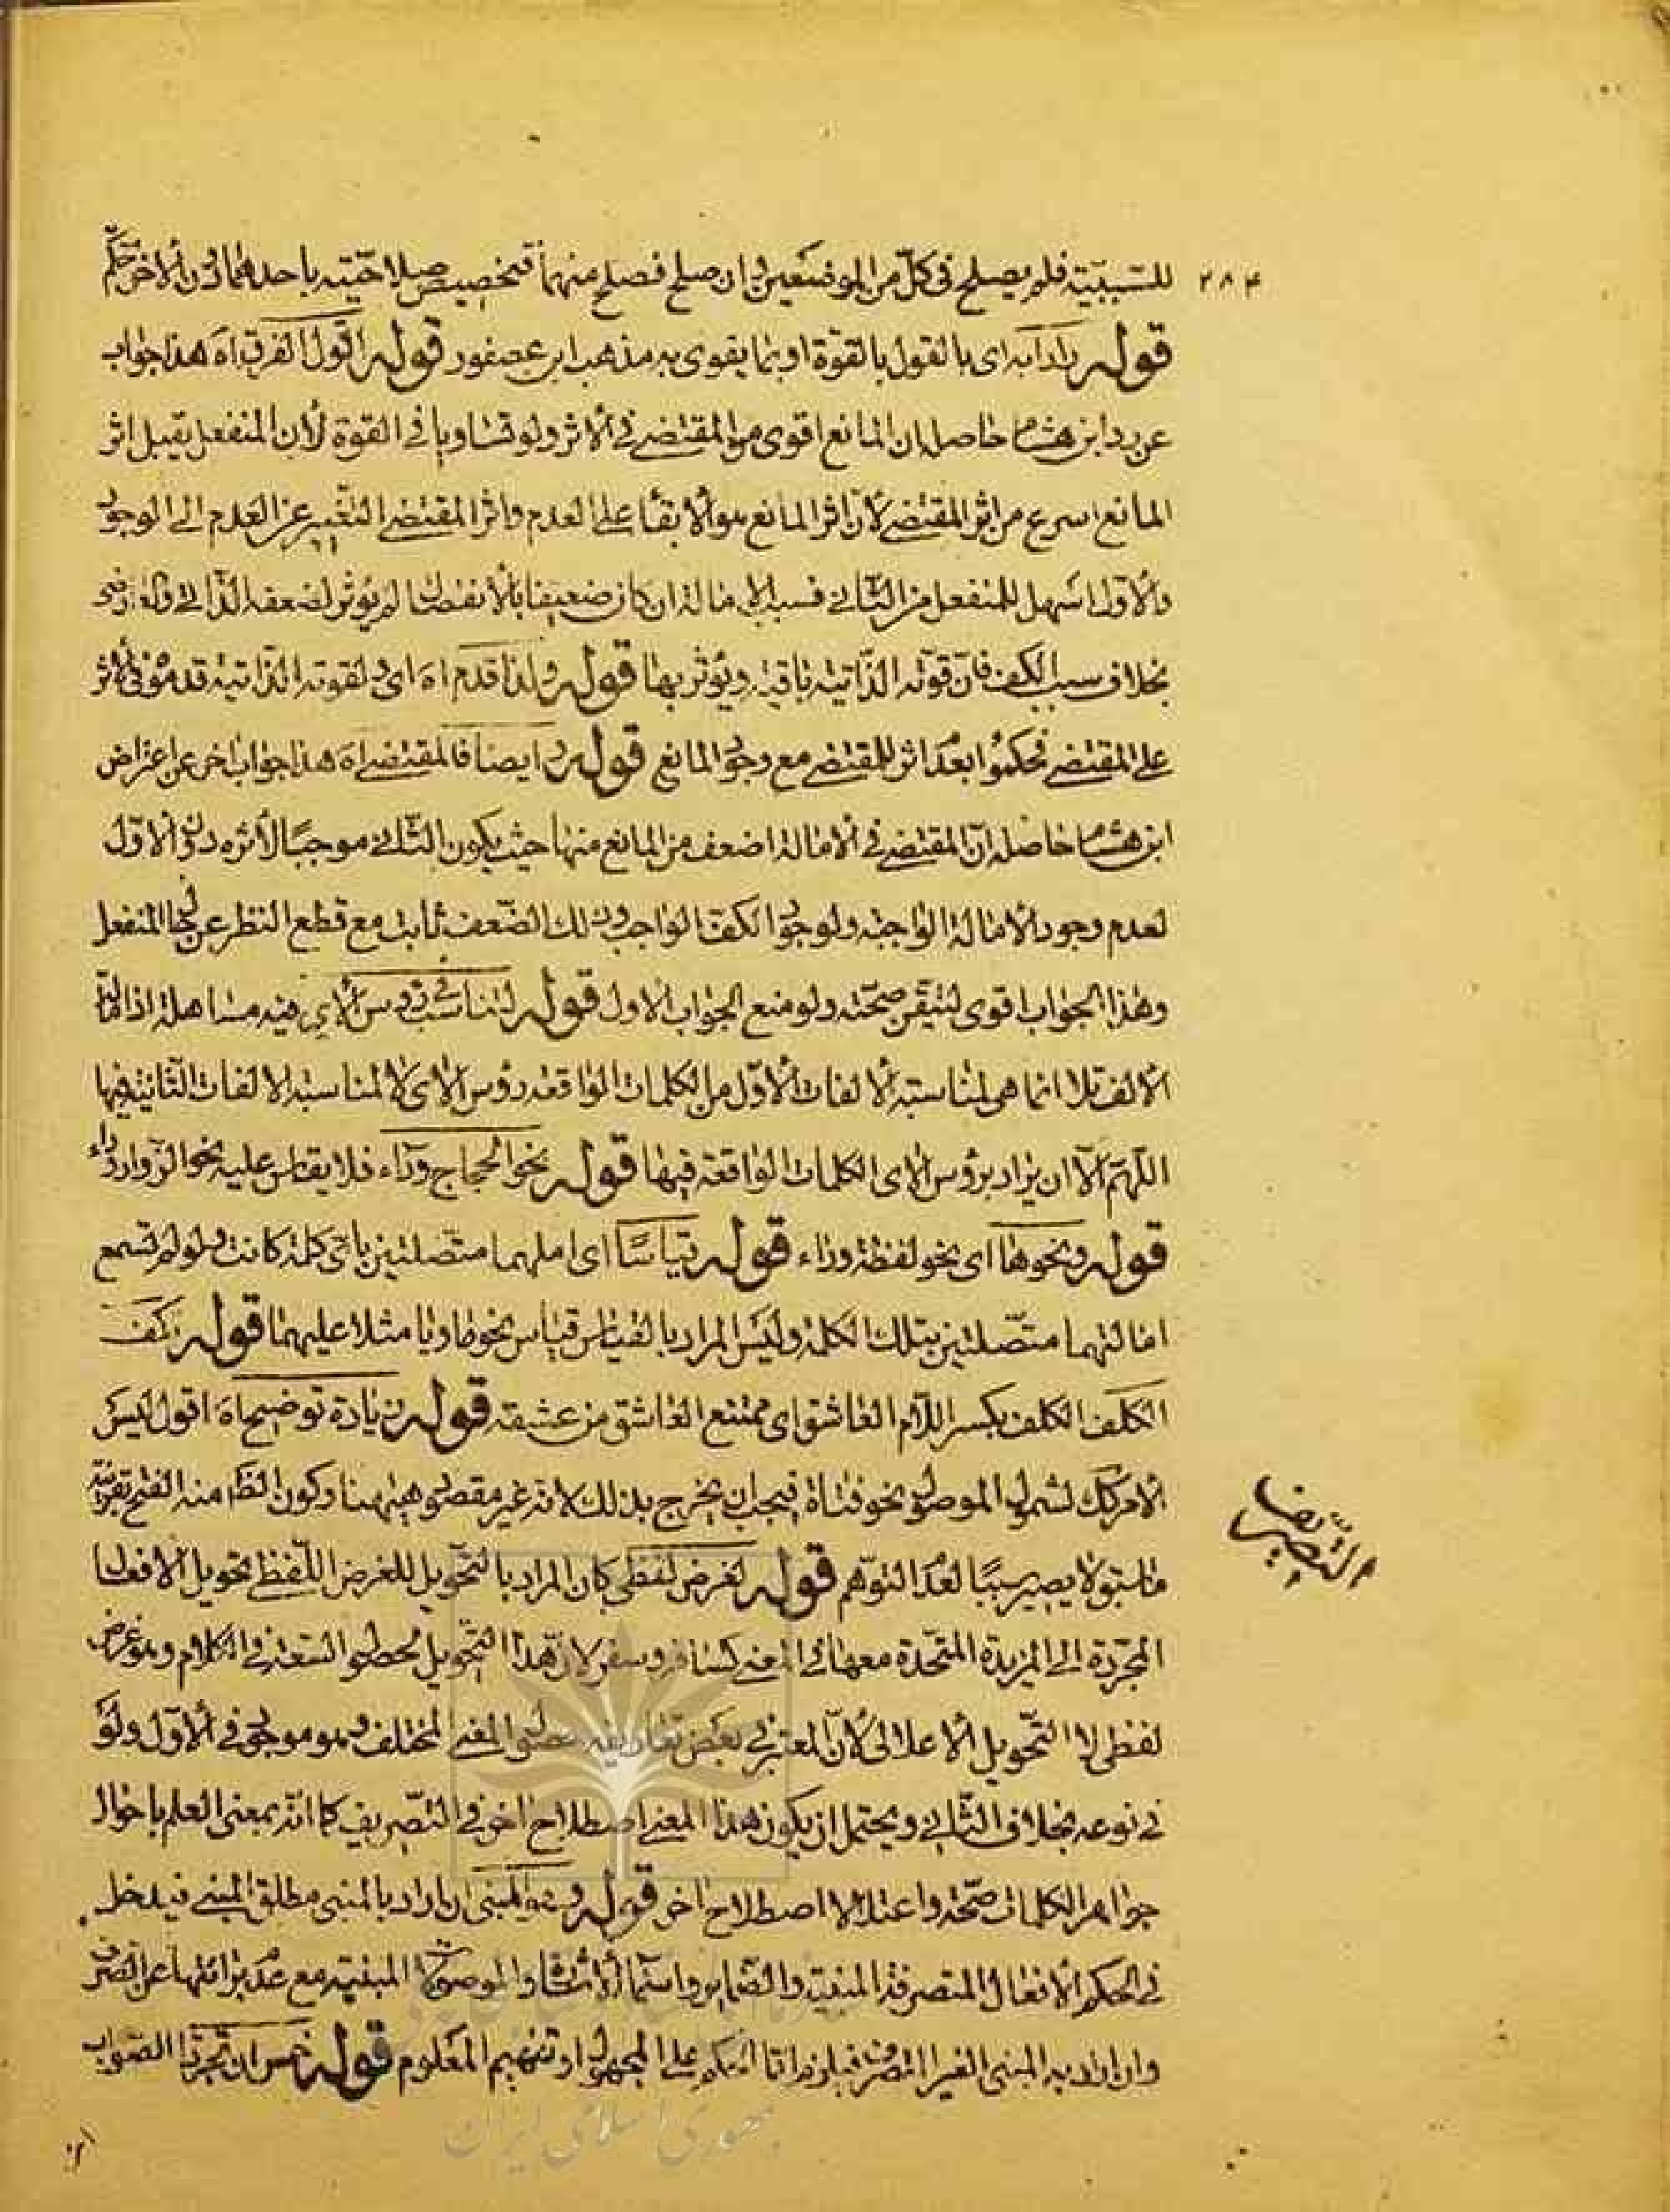 ٢٨٤
للسّببيّة فلم يصلح فى كلّ من الموضعين وان صلح فصلح منهما فتخصيص صلاحيّته باحدهما دون الاخر تحكّم
قوله رادا به اى بالقول بالقوة او بما يقوى به مذهب ابن عصفور قوله اقول الفرق اه هذا جواب
عن رد ابن هشام حاصله ان المانع اقوى من المقتضى فى الاثر ولو تساويا فى القوة لأن المنفعل يقبل اثر
المانع اسرع من اثر المقتضى لأن اثر المانع هو الابقاء على العدم واثر المقتضى التّغيير عن العدم الى الوجود
والاوّل اسهل للمنفعل من الثّانى فسبب الامالة ان كان ضعيفا بالانفصال لم يؤثر لضعفه الذّاتى
بخلاف سبب الكف فان قوّته الذّاتيّة باقية ويؤثر بها قوله ولذا قدم اه اى ولقوته الذاتية قدم
على المقتضى فحكموا بعدم اثر للمقتضى مع وجود المانع قوله وايضا فالمقتضى اه هذا جواب اخر عن اعتراض
ابن هشام حاصله انّ المقتضى فى الامالة اضعف من المانع منها حيث يكون الثّانى موجبًا لأثره دون الاوّل
لعدم وجود الامالة الواجبة ولوجود الكفّ الواجب وذلك الضّعف ثابت مع قطع النظر عن المنفعل
وهذا الجواب اقوى لتيقّن صحّته ولو منع الجواب الاول قوله لتناسب رؤس الآى فيه مساهلة اذ امالة
الالف تلا انما هى لمناسبة الالفات الاوّل من الكلمات الواقعة رؤس الآى لا لمناسبة الالفات الثّانية فيها
اللّهمّ الّا ان يراد برؤس الآى الكلمات الواقعة فيها قوله نحو الحجاج وراء فلا يقاس عليه نحو الزوار
قوله ونحوها اى نحو لفظة وراء قوله قياسًا اى املهما متصلتين باىّ كلمة كانت ولو لم تسمع
امالتهما متّصلتين بتلك الكلمة وليس المراد بالقياس قياس نحو ها ويا مثلا عليهما قوله كف
الكلف الكلف بكسر اللّام العاشق اى ممتنع العاشق من عشقه قوله زيادة توضيح اه اقول ليس
الامر كك لشموله الموصول نحو فتاة فيجب ان يخرج بذلك لانه غير مقصود هيهنا وكون الظّ منه الفتح بقرينة
ما سبق لا يصير سببًا لعدم التوهم قوله لغرض لفظى كان المراد بالتّحويل للغرض اللّفظى تحويل الافعال
المجرّدة الى المزيدة المتّحدة معها فى المعنى كسافر وسفر لان هذا التّحويل لحصول السّعة فى الكلام وهو غرض
لفظى لا التّحويل الاعلالى لأنّ المعتبر فى بعض تعاريفه حصول المعنى المختلف وهو موجود فى الاوّل ولو
فى نوعه بخلاف الثّانى ويحتمل ان يكون هذا المعنى اصطلاح اخر فى التّصريف كما انّه بمعنى العلم باحوال
جواهر الكلمات صحّة واعتلالا اصطلاح اخر قوله وهو المبنى ان اراد بالمبنى مطلق المبنى فيدخل
فى الحكم الافعال المتصرفة المبنية والضّماير واسماء الاشارة والموصولات المبنية مع عدم برائتها عن التصرّف
وان اراد به المبنى الغير المتصرف فيلزم امّا الحكم على المجهول او تفهيم المعلوم قوله خمس ان تجرّدا الصّواب
التصريف
جمهوری اسلامی ایران